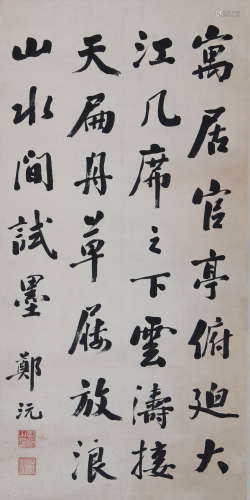 寓居官亭俯迫大
江几席之下雲濤接
天扁舟草屨放浪
山水間試墨 鄭沅